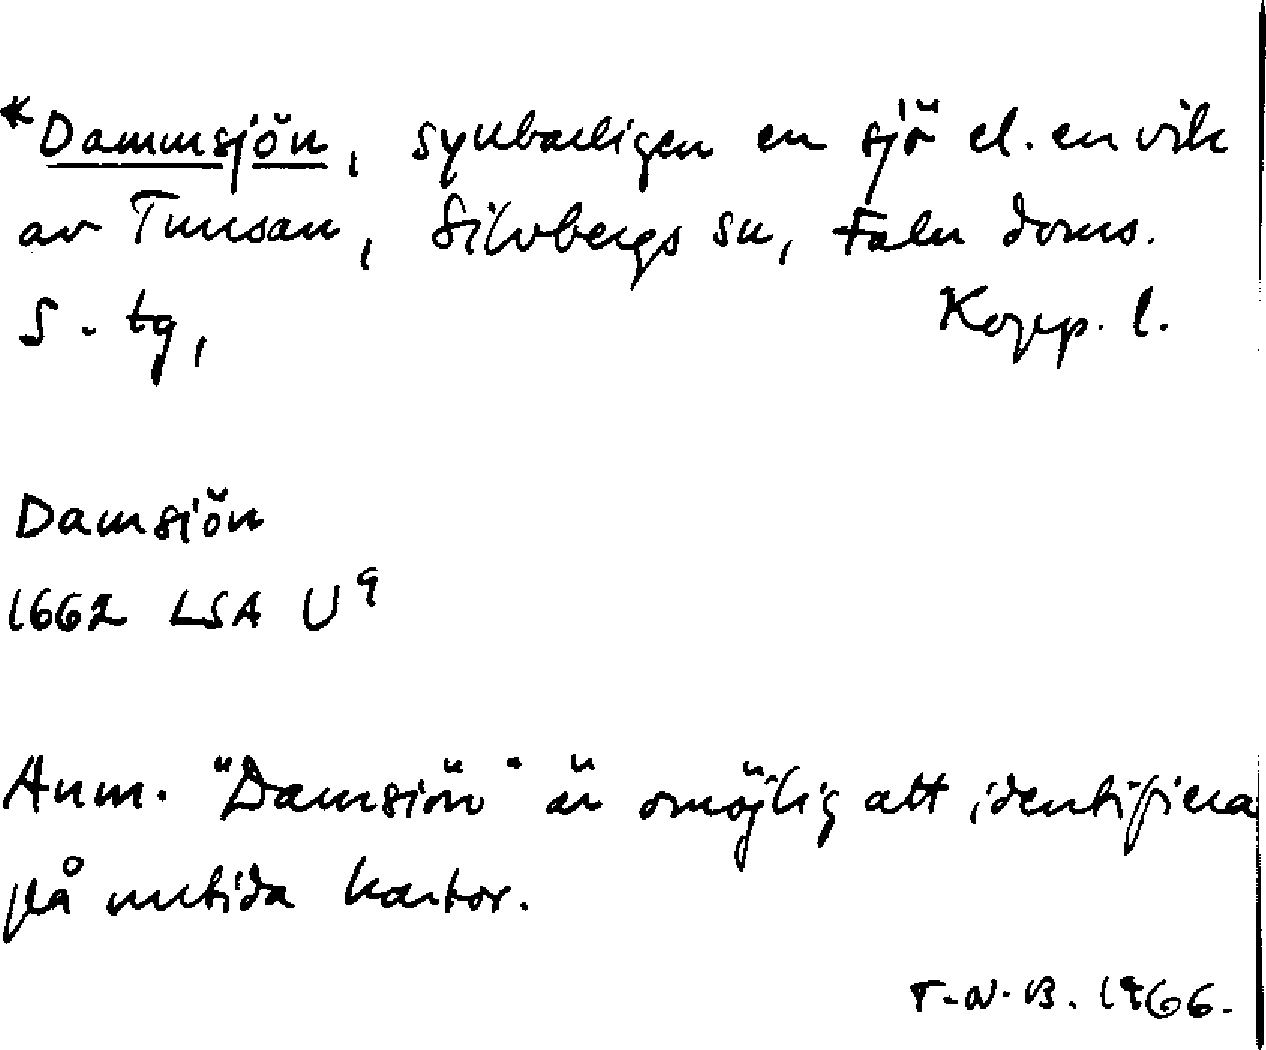 *Dammsjön, synbarligen en sjö el. en vik
av Tunsan, Silvbergs sn, Falu doms.
S-tg, Kopp. l.
Damsiön
1662 LSA U9
Anm. "Damsiön" är omöjlig att identifiera
på nutida kartor.
T-N.B. 1966.